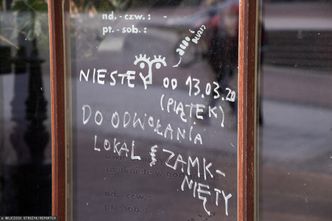 nd.-czw.: -
pt.-sob.:
NIESTETY OD 13.03.20
(PIĄTEK)
DO ODWOŁANIA
LOKAL
ZAMK-
NIĘTY
© WOJCIECH STROZYK/REPORTER